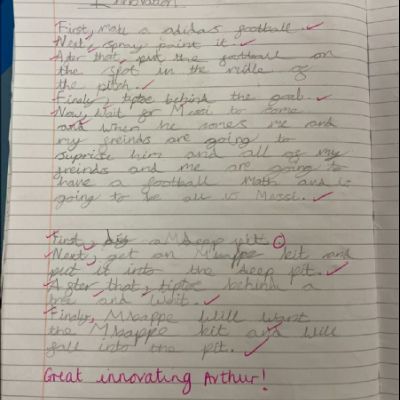 Innovation
First, mak a adidas football.
Next, spray paint it.
After that, put the football on
the spot in the midle of
the pitch.
Finely, tiptoe behind the goal.
Now, wait for Messi to come
and when he comes me and
my greinds are going to
suprise him and all of my
greinds and me are going to
have a football Math and is
going to be all vs Messi.
First, dig a deep pit.
Next, get an Mbappe kit and
put it into the deep pit.
After that, tiptoe behind a
tree and wait.
Finely, Mbappe will want
the Mbappe kit and will
fall into the pit.
Great innovating Arthur!